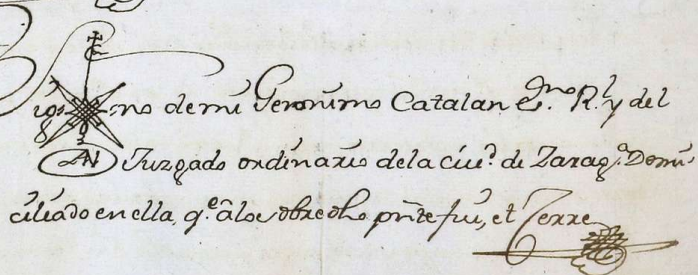 Sig no de mi Geronimo Catalan Es.no R.l y del
Juzgado ordinario de la ciu.d de Zarag.a Domi
ciliado en ella, q.e â lo sobredho pnte fui, et Zerre